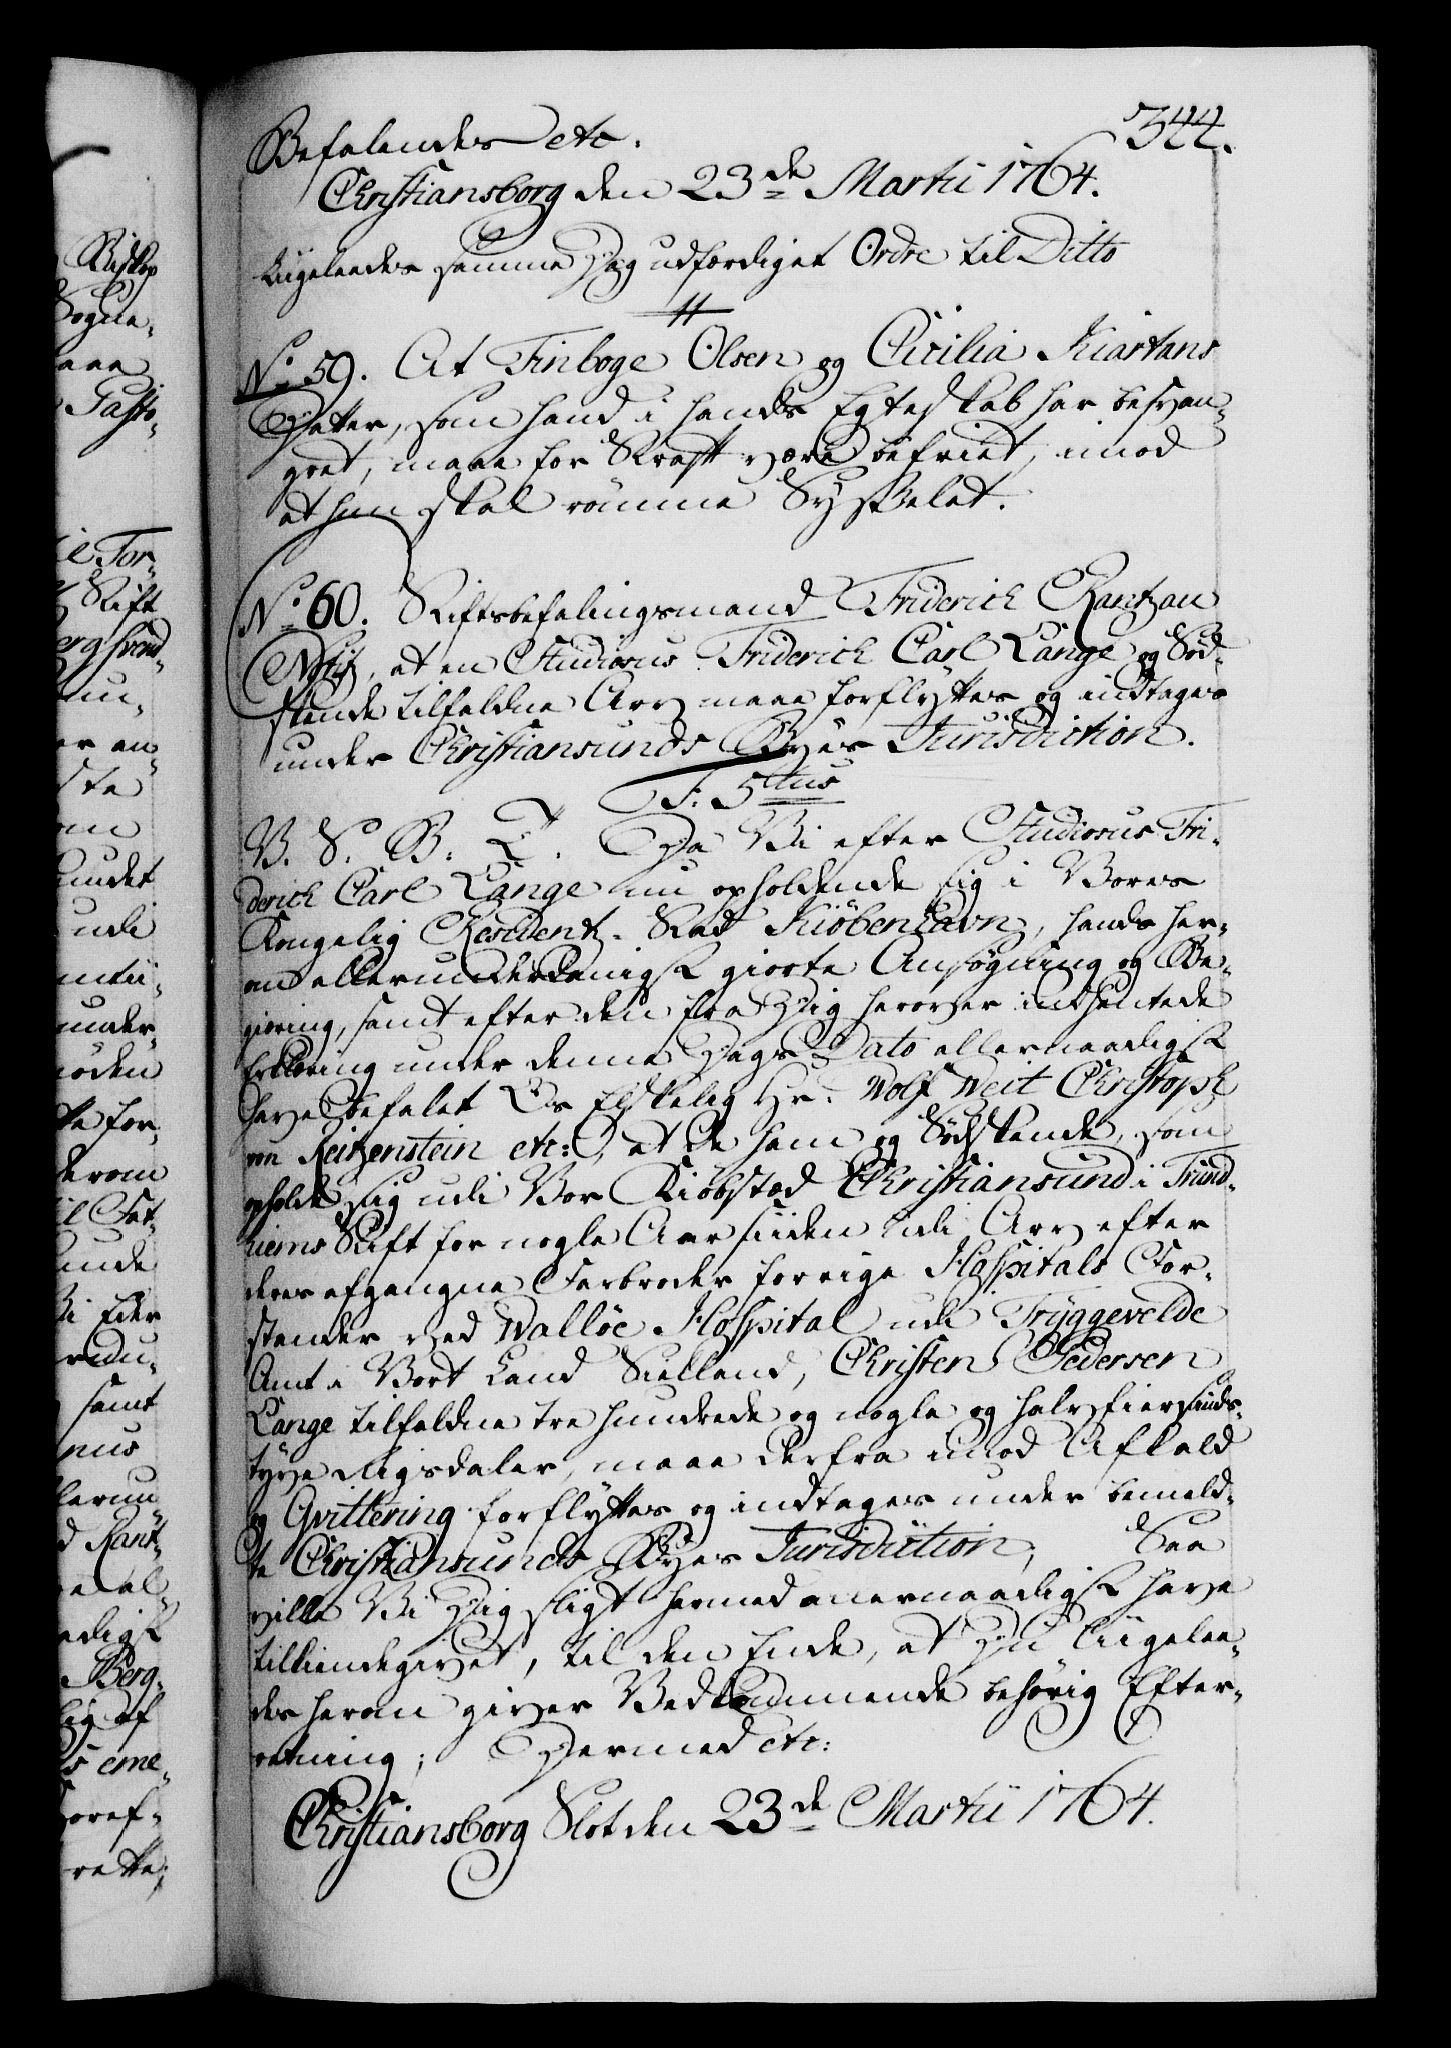 344.
Befalendes etc.
Christiansborg den 23de Martii 1764.
Ligeleedes samme Dag udfærdiget Ordre til Ditto
No 59. At Finboge Olsen og Cicilia Kiartans
Datter, som hand i hands Egteskab har besvan-
gret, maae for Straff være befriet, imod
at hun skal rømme Sysselet.
No 60. Stiftsbefalingsmand Friderich Rantzau
Notif, at en Studiosus Friderich Carl Lange og Sød-
skende tilfaldne Arv maae forflyttes og indtages
under Christiansunds Byes Jurisdiction.
F. 5tus
V. S. B. T. Da Vi efter Studiosus Fri-
derich Carl Lange nu opholdende sig i Vores
Kongelig Residentz-Stad Kiöbenhavn, hands her-
om allerunderdanigst giorte Ansøgning og Be-
giering, samt efter den fra Dig herover indhentede
Erklæring under denne Dags Dato allernaadigst
have befalet Os Elskelig Hr. Wolf Weit Christoph
von Reitzenstein etc:, at de ham og Sødskende, som
opholde sig udi Vor Kiøbstæd Christiansund i Trund-
hiems Stift for nogle Aar siiden udi Arv efter
deres afgangne Farbroder forrige Hospitals For-
stander ved Walløe Hospital udi Tryggevelde
Amt i Vort Land Siælland, Christen Pedersen
Lange tilfaldne tre hundrede og nogle og halvfiersinds-
tyve Rigsdaler, maae derfra imod Afkald
og Qvittering forflyttes og indtages under bemeld-
te Christiansunds Byes Jurisdiction, Saa
ville Vi Dig sligt hermed allernaadigst have
tilkiendegivet, til den Ende, at Du liigelee-
des herom giver Vedkommende behörig Efter-
retning; Dermed etc:
Christiansborg Slot den 23de Martii 1764.